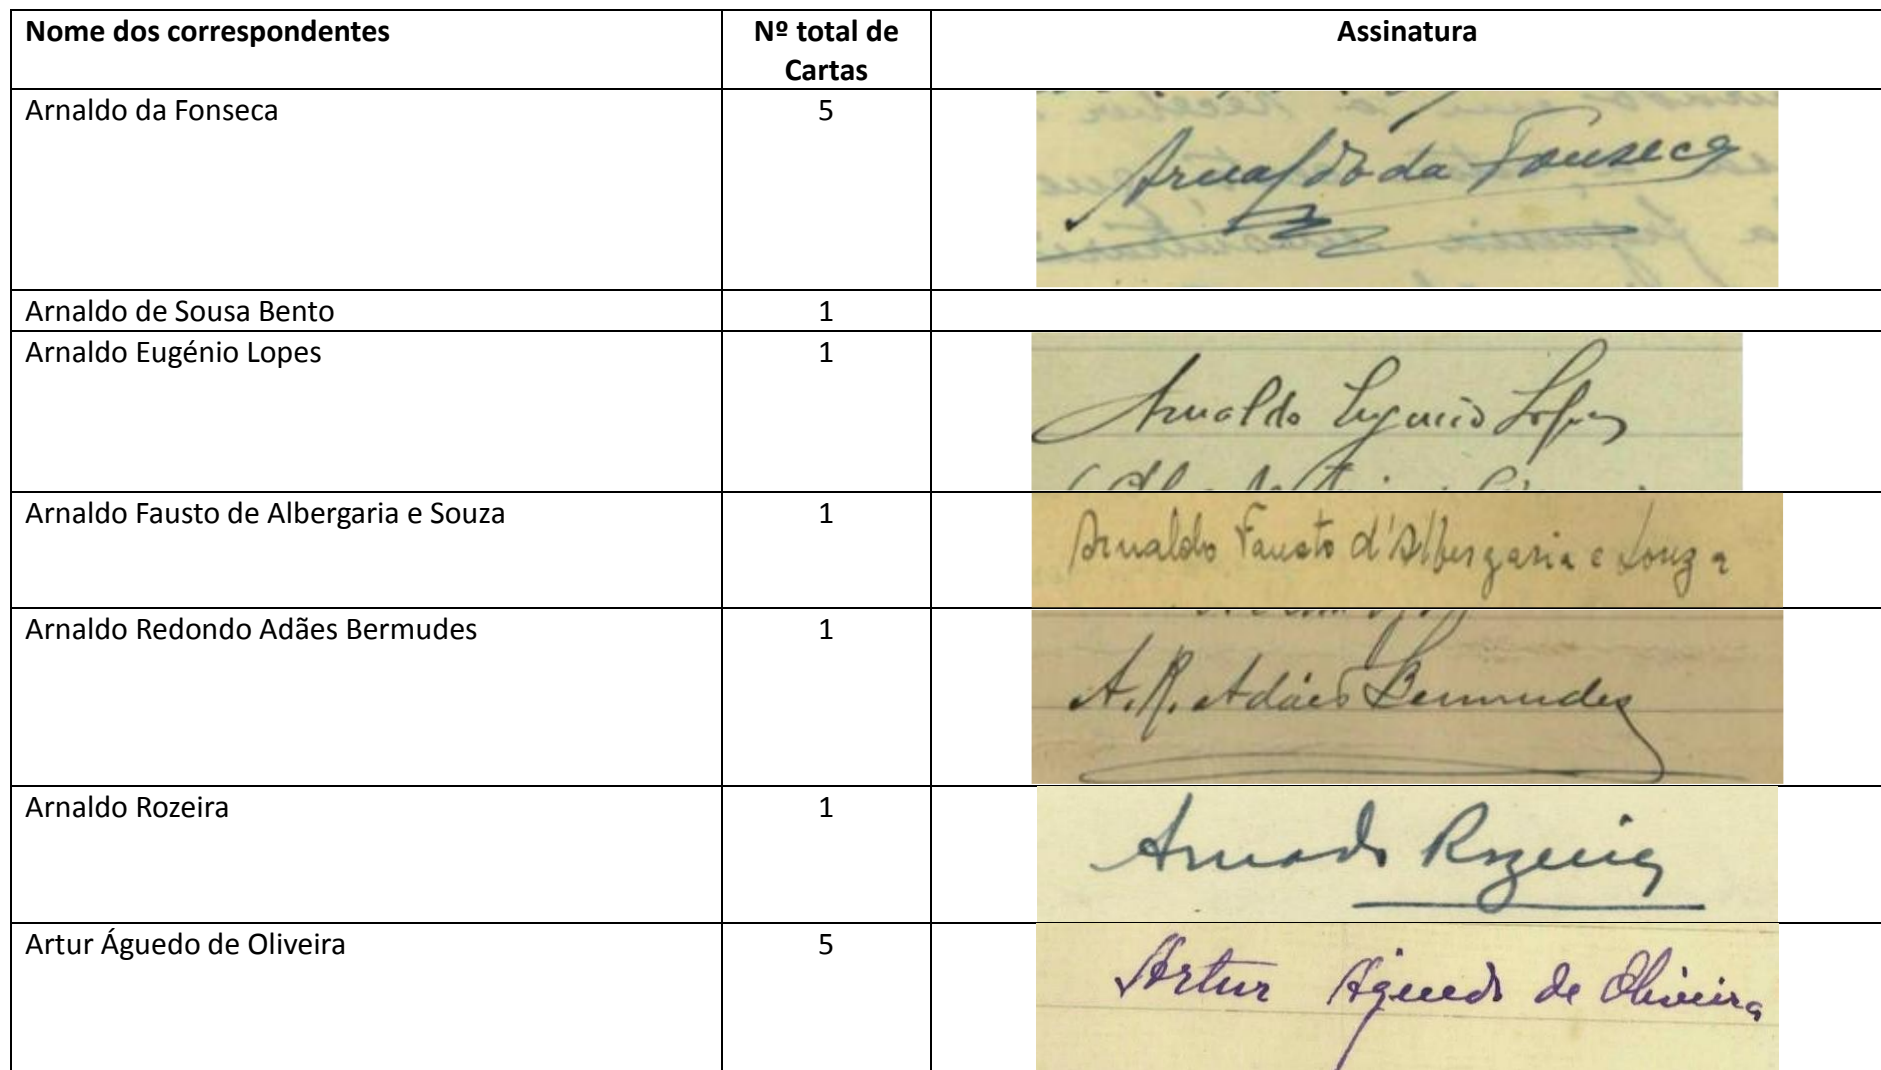 Nome dos correspondentes
Nº total de
Cartas
Assinatura
Arnaldo da Fonseca
5
Arnaldo da Fonseca
Arnaldo de Sousa Bento
1
Arnaldo Eugénio Lopes
1
Arnaldo Eugenio Lopes
Arnaldo Fausto de Albergaria e Souza
1
Arnaldo Fausto d'Albergaria e Souza
Arnaldo Redondo Adães Bermudes
1
A. R. Adães Bermudes
Arnaldo Rozeira
1
Arnaldo Rozeira
Artur Águedo de Oliveira
5
Artur Águedo de Oliveira